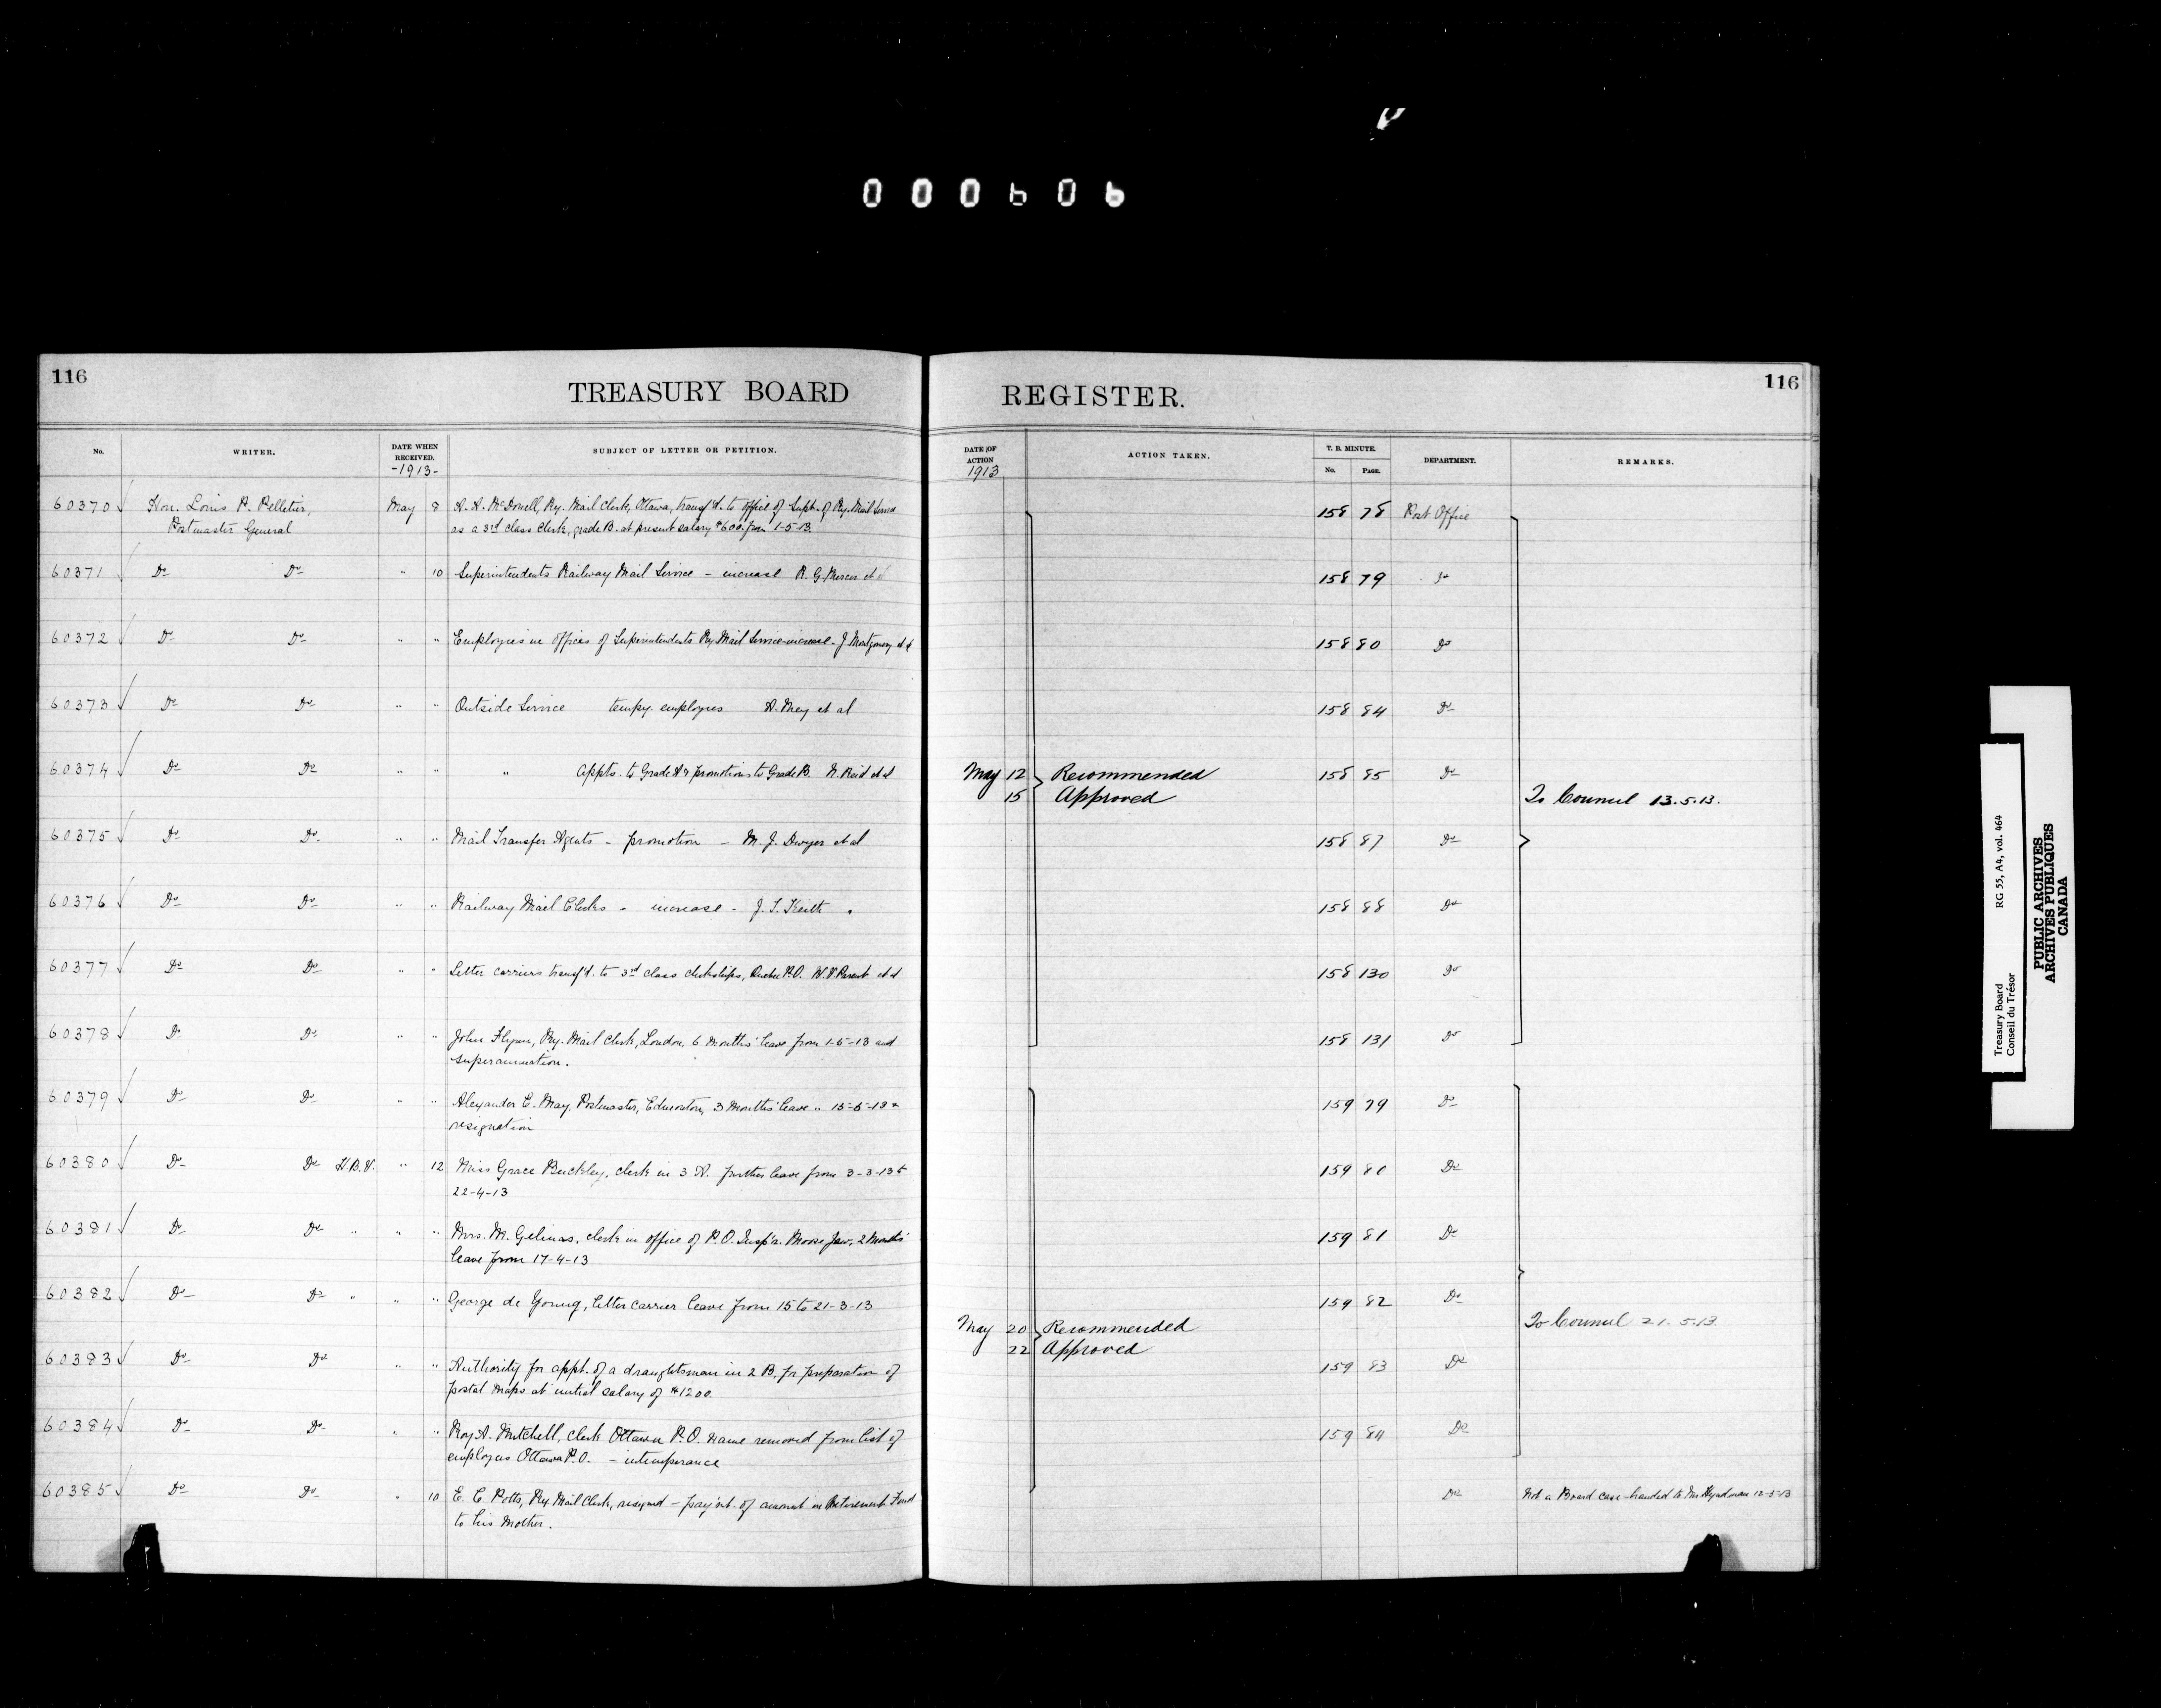 000606
116
TREASURY BOARD REGISTER.
116
No. WRITER. DATE WHEN RECEIVED. -1913- SUBJECT OF LETTER OR PETITION. DATE OF ACTION 1913 ACTION TAKEN. T. B. MINUTE. No. PAGE. DEPARTMENT. REMARKS.
60370 Hon. Louis P. Pelletier, May 8 McDonell, Ry. Mail Clerk, Ottawa, transf'd. to office of Supt. of Ry. Mail Service 158 78 Post Office
Postmaster General as a 3rd class Clerk, grade B. at present salary $600. from 1-5-13.
60371 Do Do " 10 Superintendents Railway Mail Service - increase et al 158 79 Do
60372 Do Do " " Employees in offices of Superintendents Ry Mail Service-increase - J. Montgomery et al 158 80 Do
60373 Do Do " " Outside Service tempy. employees A. May et al 158 84 Do
60374 Do Do " " " Appts. to Grade A & promotions to Grade B. Reid et al May 12 Recommended 158 85 Do
15 Approved To Council 13.5.13.
60375 Do Do " " Mail Transfer Agents - promotion - M. J. Dwyer et al 158 87 Do
60376 Do Do " " Railway Mail Clerks - increase - Keith " 158 88 Do
60377 Do Do " " Letter carriers transf'd. to 3rd class clerkships, Quebec P.O. Parent et al 158 130 Do
60378 Do Do " " John Flynn, Ry. Mail Clerk, London, 6 months' leave from 1-5-13 and 158 131 Do
superannuation.
60379 Do Do " " Alexander E. May, Postmaster, Edmonton, 3 months' leave " 15-5-13 & 159 79 Do
resignation
60380 Do Do H.B.V. " 12 Miss Grace Buckley, clerk in 3 A. further leave from 3-3-13 to 159 80 Do
22-4-13
60381 Do Do " " " Mrs. M. Gelinas, clerk in office of P.O. Insp'r. Moose Jaw, 2 months' 159 81 Do
leave from 17-4-13
60382 Do Do " " " George de Young, letter carrier leave from 15 to 21-3-13 159 82 Do
May 20 Recommended To Council 21.5.13.
22 Approved
60383 Do Do " " Authority for appt. of a draughtsman in 2 B. for preparation of 159 83 Do
postal maps at initial salary of $1200.
60384 Do Do " " Roy A. Mitchell, clerk Ottawa P.O. name removed from list of 159 84 Do
employees Ottawa P.O. - intemperance
60385 Do Do " 10 E. C. Potts, Ry Mail Clerk, resigned - pay'nt. of amount in Retirement Fund Do Not a Board case - handed to Mr 12-5-13
to his mother.
Treasury Board RG 55, A4, vol. 464
Conseil du Trésor
PUBLIC ARCHIVES
ARCHIVES PUBLIQUES
CANADA